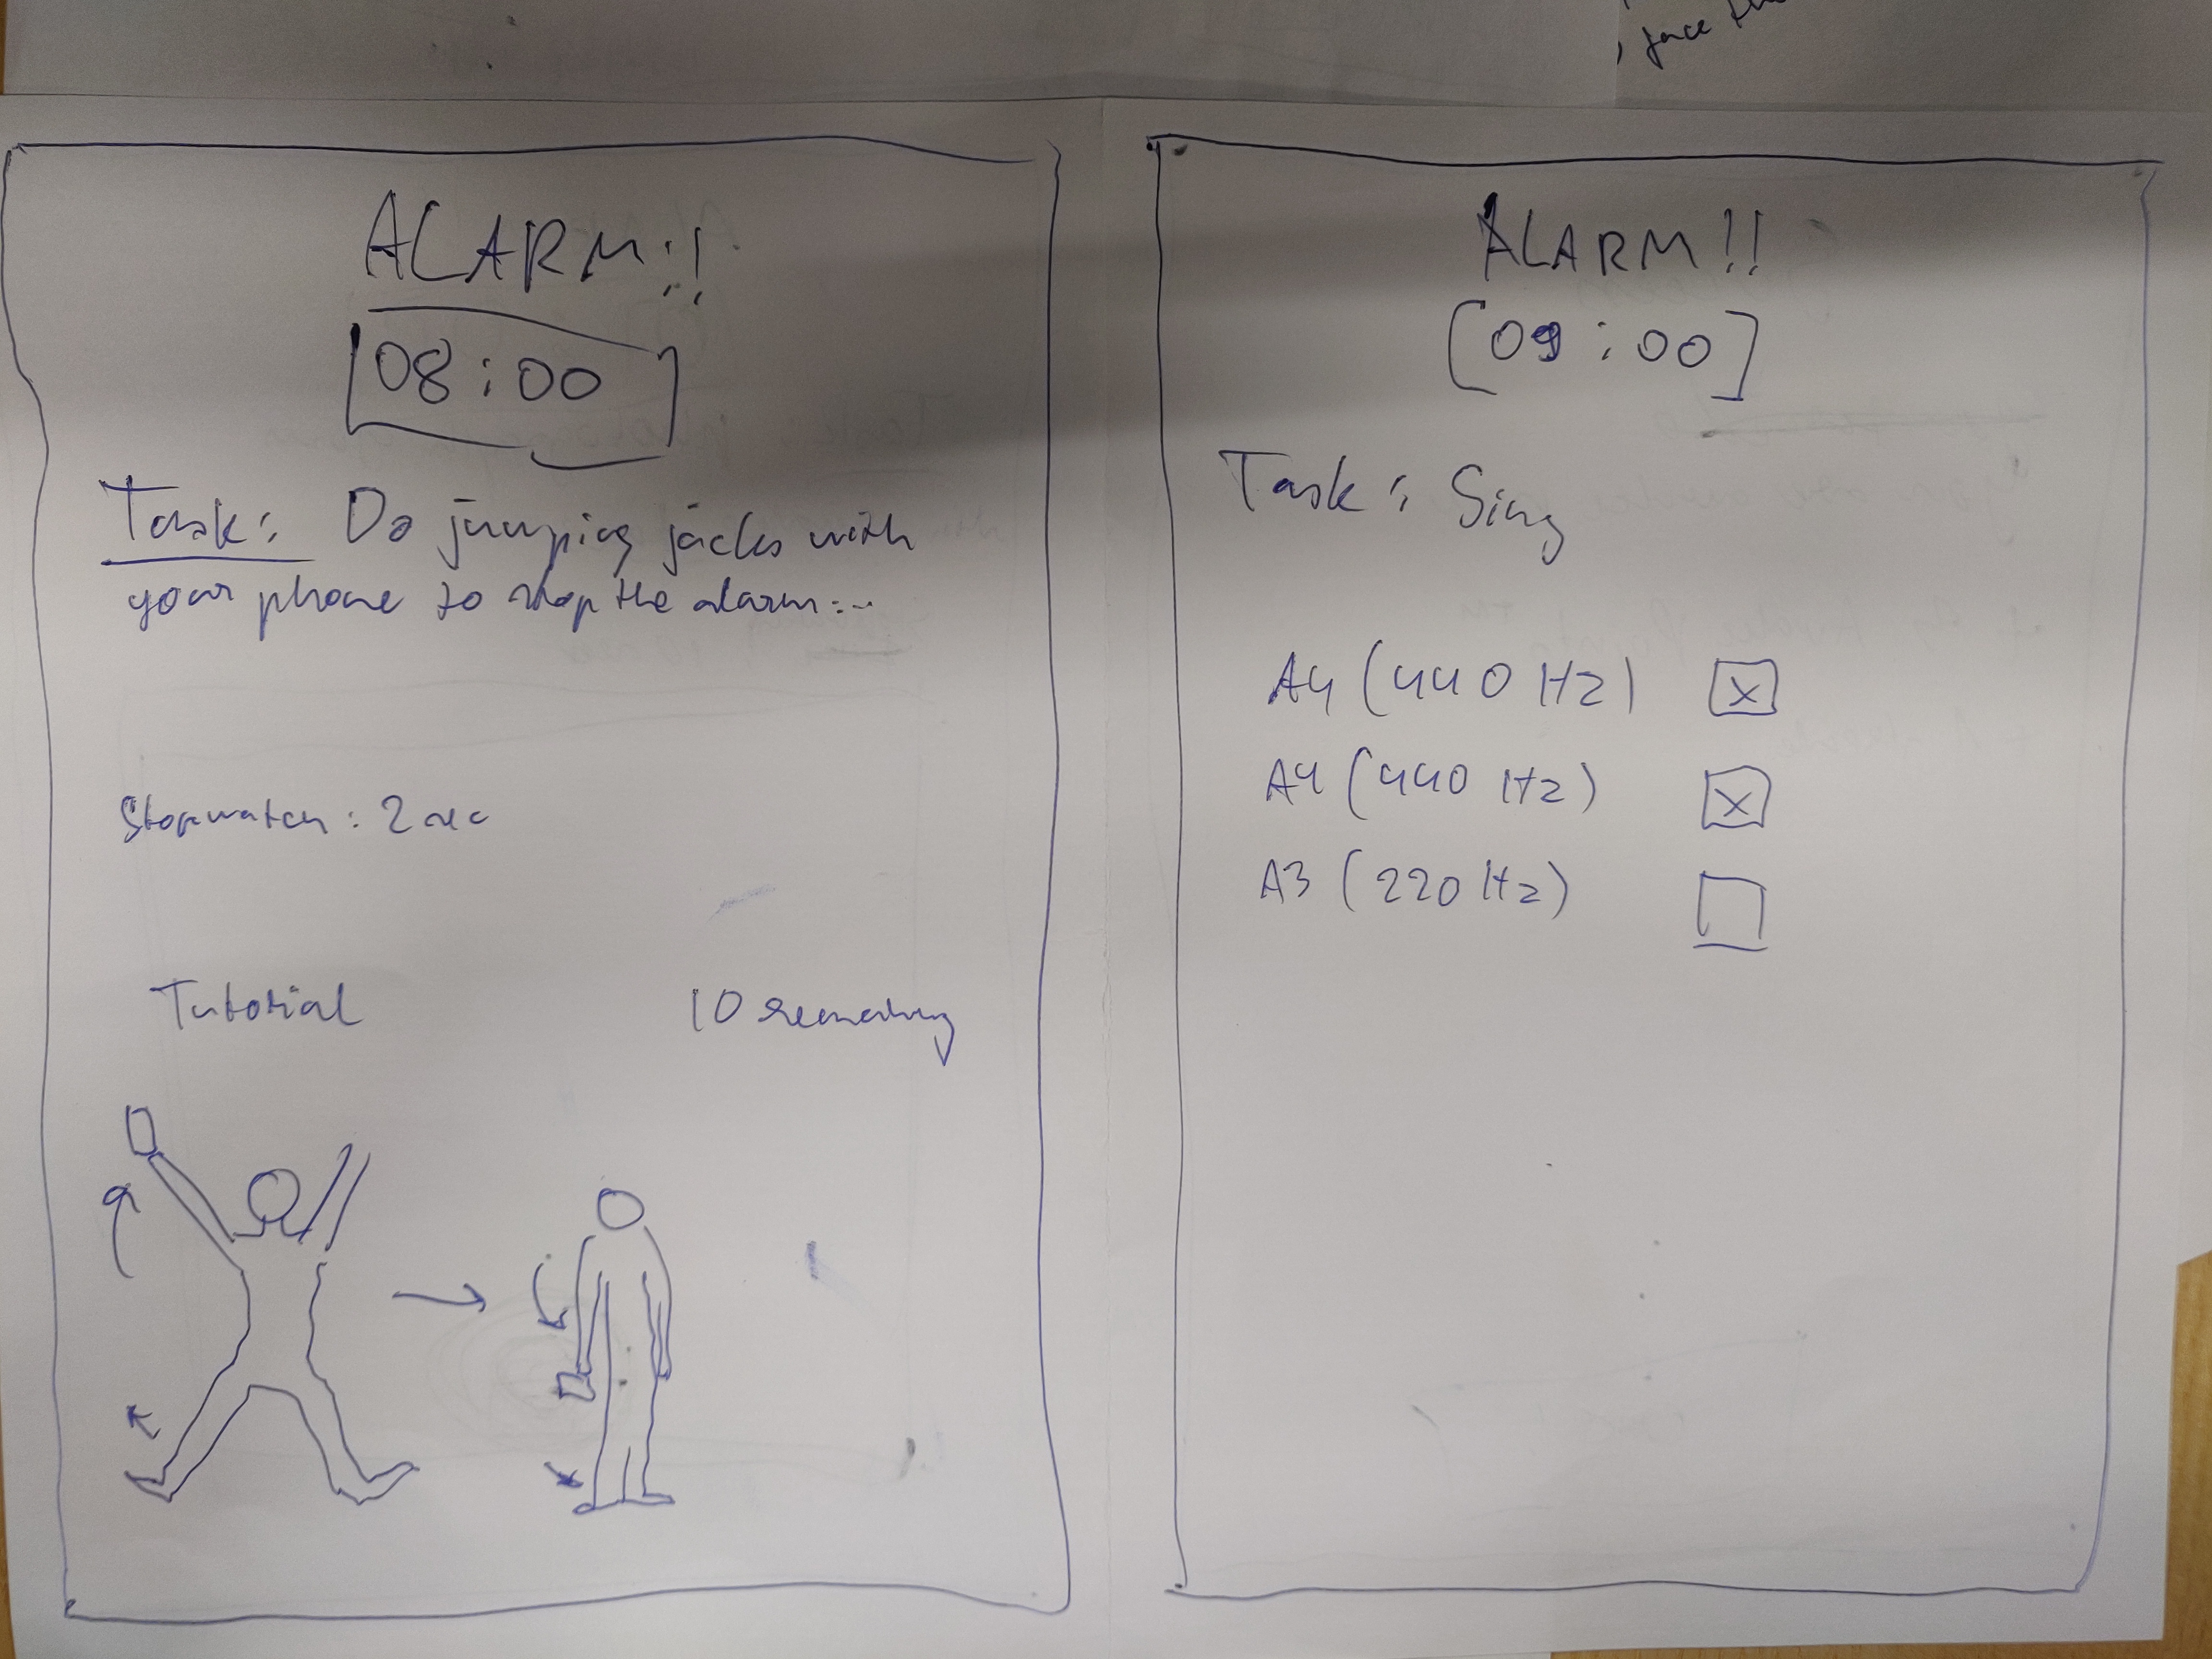 , face the
ALARM!!
08:00
Task: Do jumping jacks with
your phone to stop the alarm...
Stopwatch: 2 sec
Tutorial
10 remaining
ALARM!!
[09:00]
Task: Sing
A4 (440 Hz) [x]
A4 (440 Hz) [x]
A3 (220 Hz)